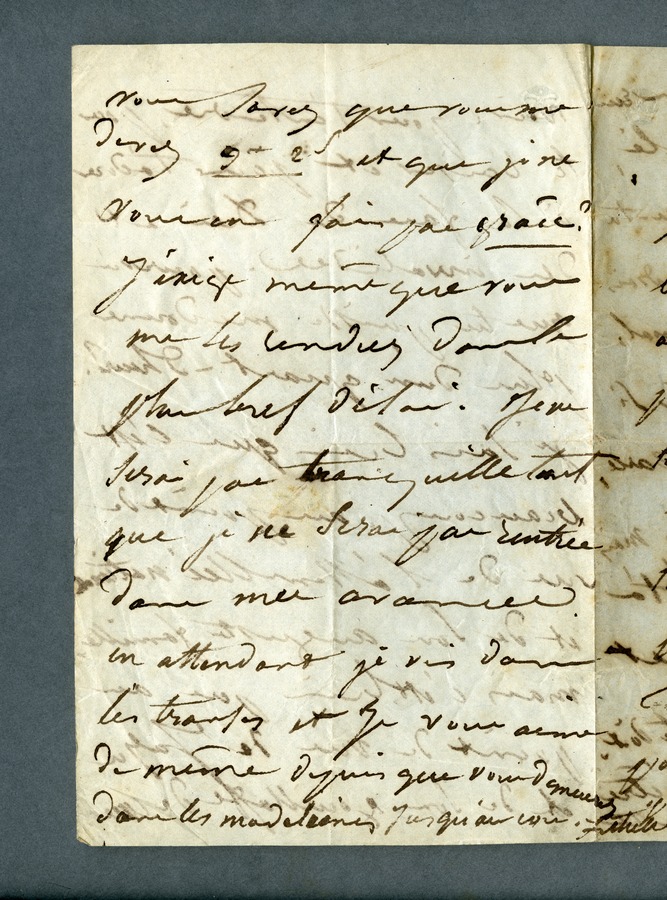 vous savez que vous me
devez 9 f 2 s et que je ne
vous en fais pas grâce.
J'exige même que vous
me les rendiez dans le
plus bref délai. Je ne
serai pas tranquille tant
que je ne serai pas rentrée
dans mes avances.
en attendant je vis dans
les transes et je vous aime
de même depuis que vous demeurez
dans les madeleines jusqu'au cou.